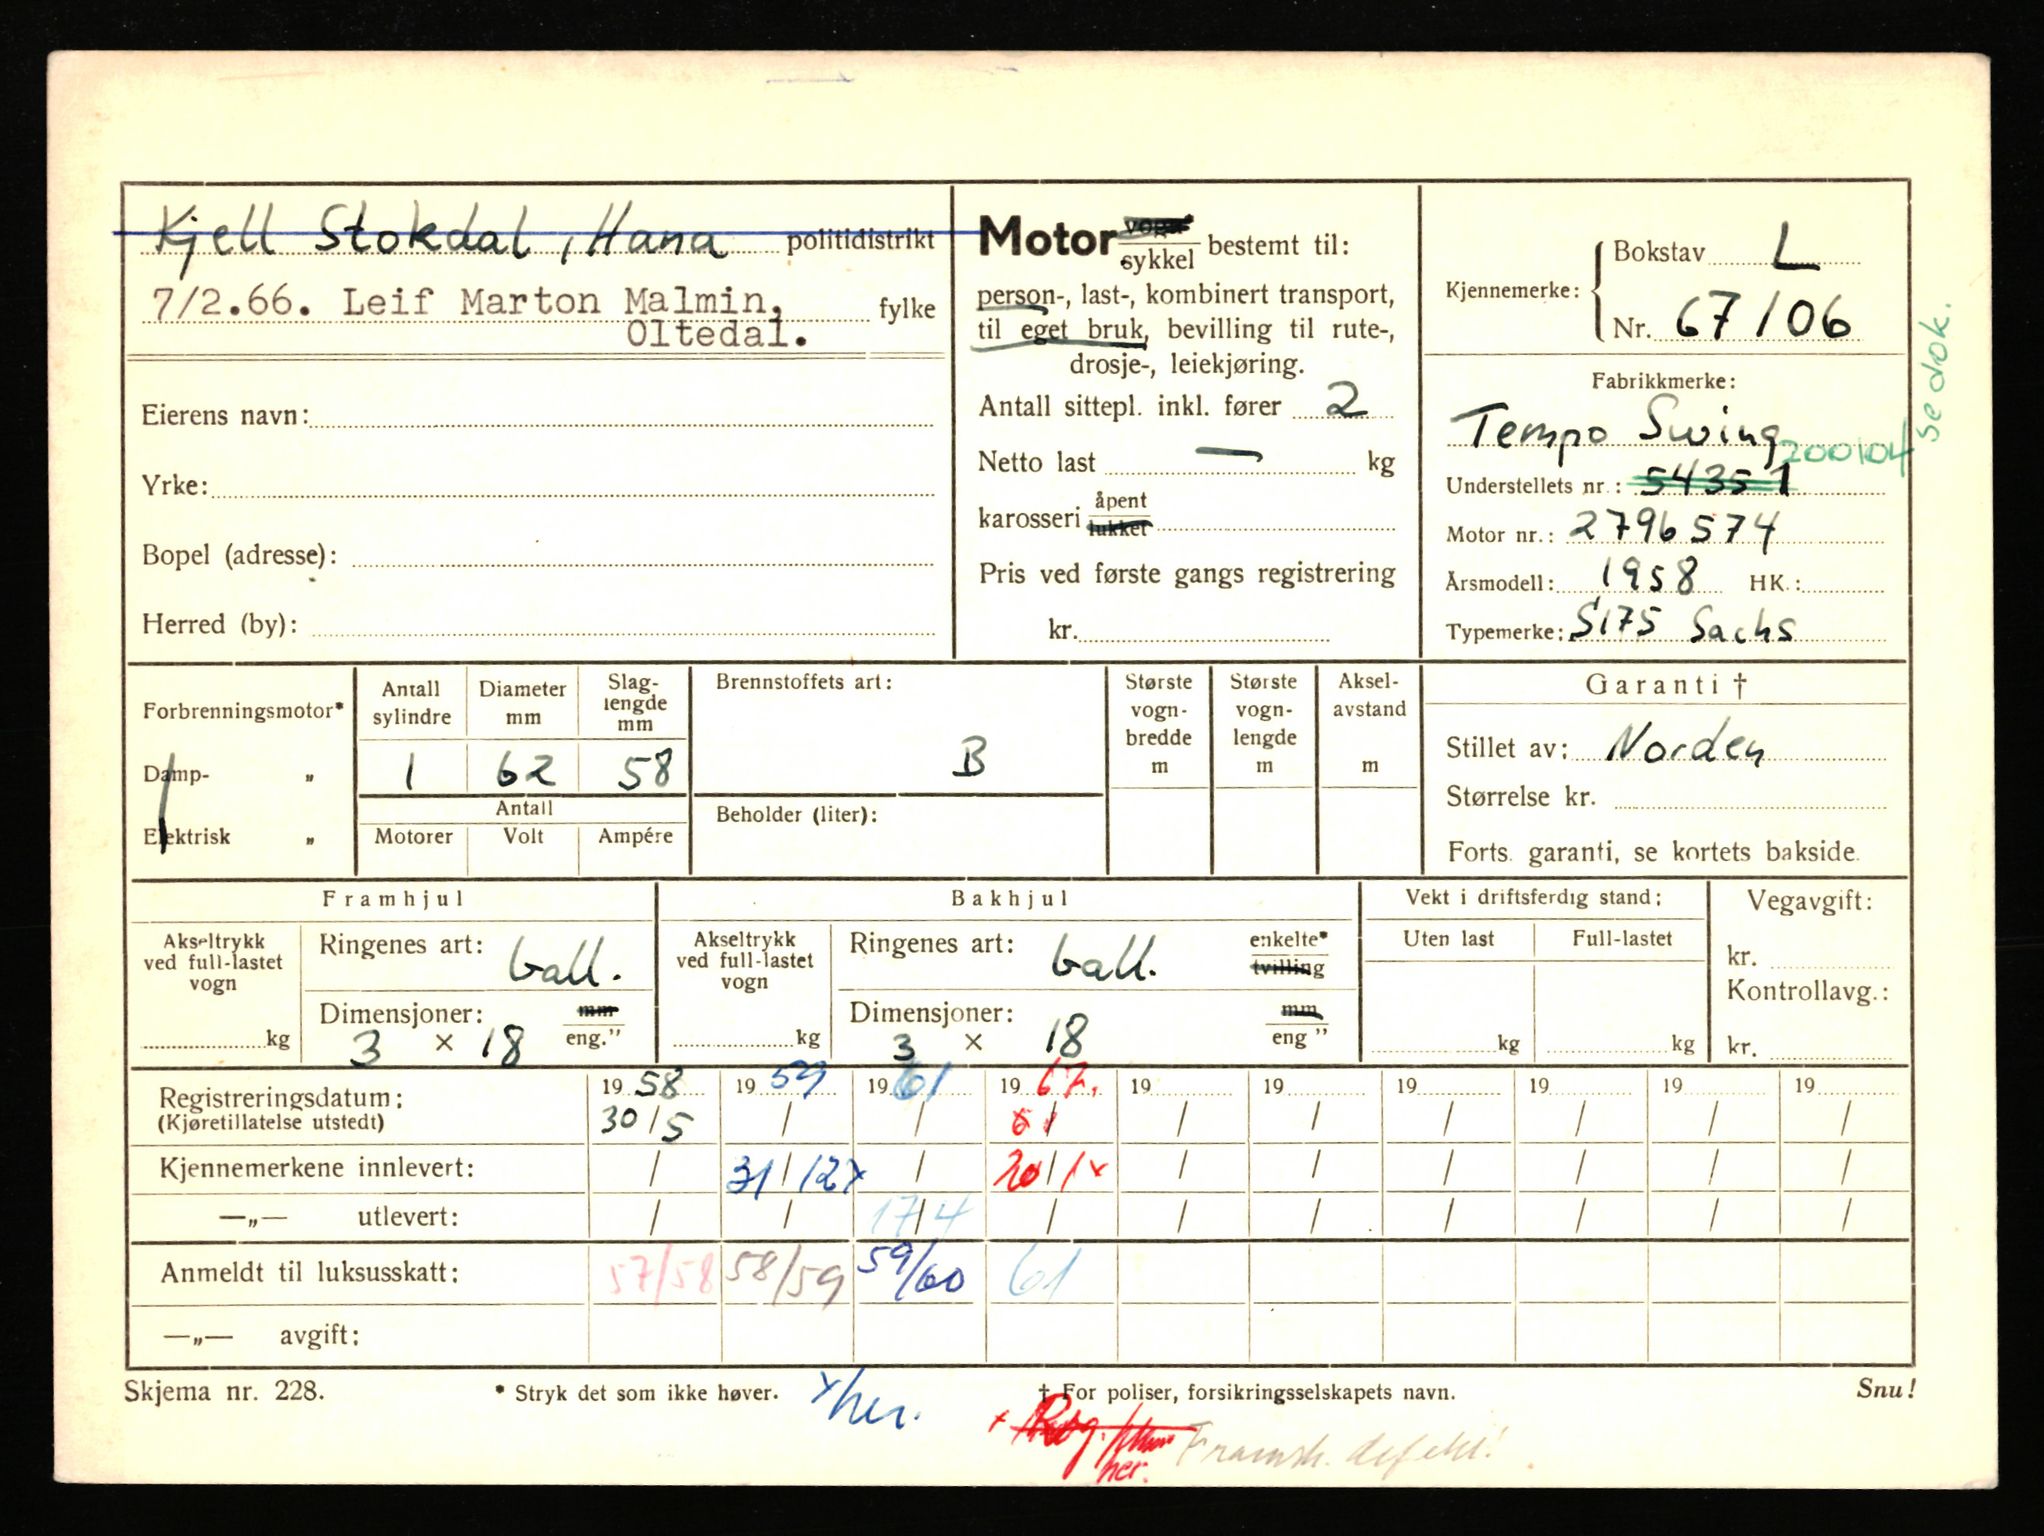 Kjell Stokdal, Hana politidistrikt
7/2.66. Leif Marton Malmin, fylke
Oltedal.
Eierens navn:
Yrke:
Bopel (adresse):
Herred (by):
Motor vogn* sykkel bestemt til:
person-, last-, kombinert transport,
til eget bruk, bevilling til rute-,
drosje-, leiekjøring.
Antall sittepl. inkl. fører 2
Netto last — kg
karosseri åpent lukket
Pris ved første gangs registrering
kr.
Kjennemerke: Bokstav L
Nr. 67106
se dok.
Fabrikkmerke:
Tempo Swing
200104
Understellets nr.: 54351
Motor nr.: 2796574
Årsmodell: 1958 HK.:
Typemerke: S175 Sachs
Forbrenningsmotor*
Damp- „
Elektrisk „
Antall sylindre
Diameter mm
Slag-lengde mm
1 62 58
Antall
Motorer Volt Ampére
Brennstoffets art:
B
Beholder (liter):
Største vogn-bredde m
Største vogn-lengde m
Aksel-avstand m
Garanti †
Stillet av: Norden
Størrelse kr.
Forts. garanti, se kortets bakside.
Framhjul
Akseltrykk ved full-lastet vogn
kg
Ringenes art: ball.
Dimensjoner: mm
3 × 18 eng."
Bakhjul
Akseltrykk ved full-lastet vogn
kg
Ringenes art: ball. enkelte* tvilling
Dimensjoner: mm
3 × 18 eng "
Vekt i driftsferdig stand:
Uten last Full-lastet
kg kg
Vegavgift:
kr.
Kontrollavg.:
kr.
Registreringsdatum: 1958 1959 1961 1967. 19 19 19 19 19 19
(Kjøretillatelse utstedt) 30/5 / / / / / / / / /
Kjennemerkene innlevert: / 31/12x / 20/1x / / / / / /
—„— utlevert: / / 17/4 / / / / / / /
Anmeldt til luksusskatt: 57/58 58/59 59/60 61
—„— avgift:
Skjema nr. 228. * Stryk det som ikke høver. † For poliser, forsikringsselskapets navn. Snu!
x her.
x her.
defekt!